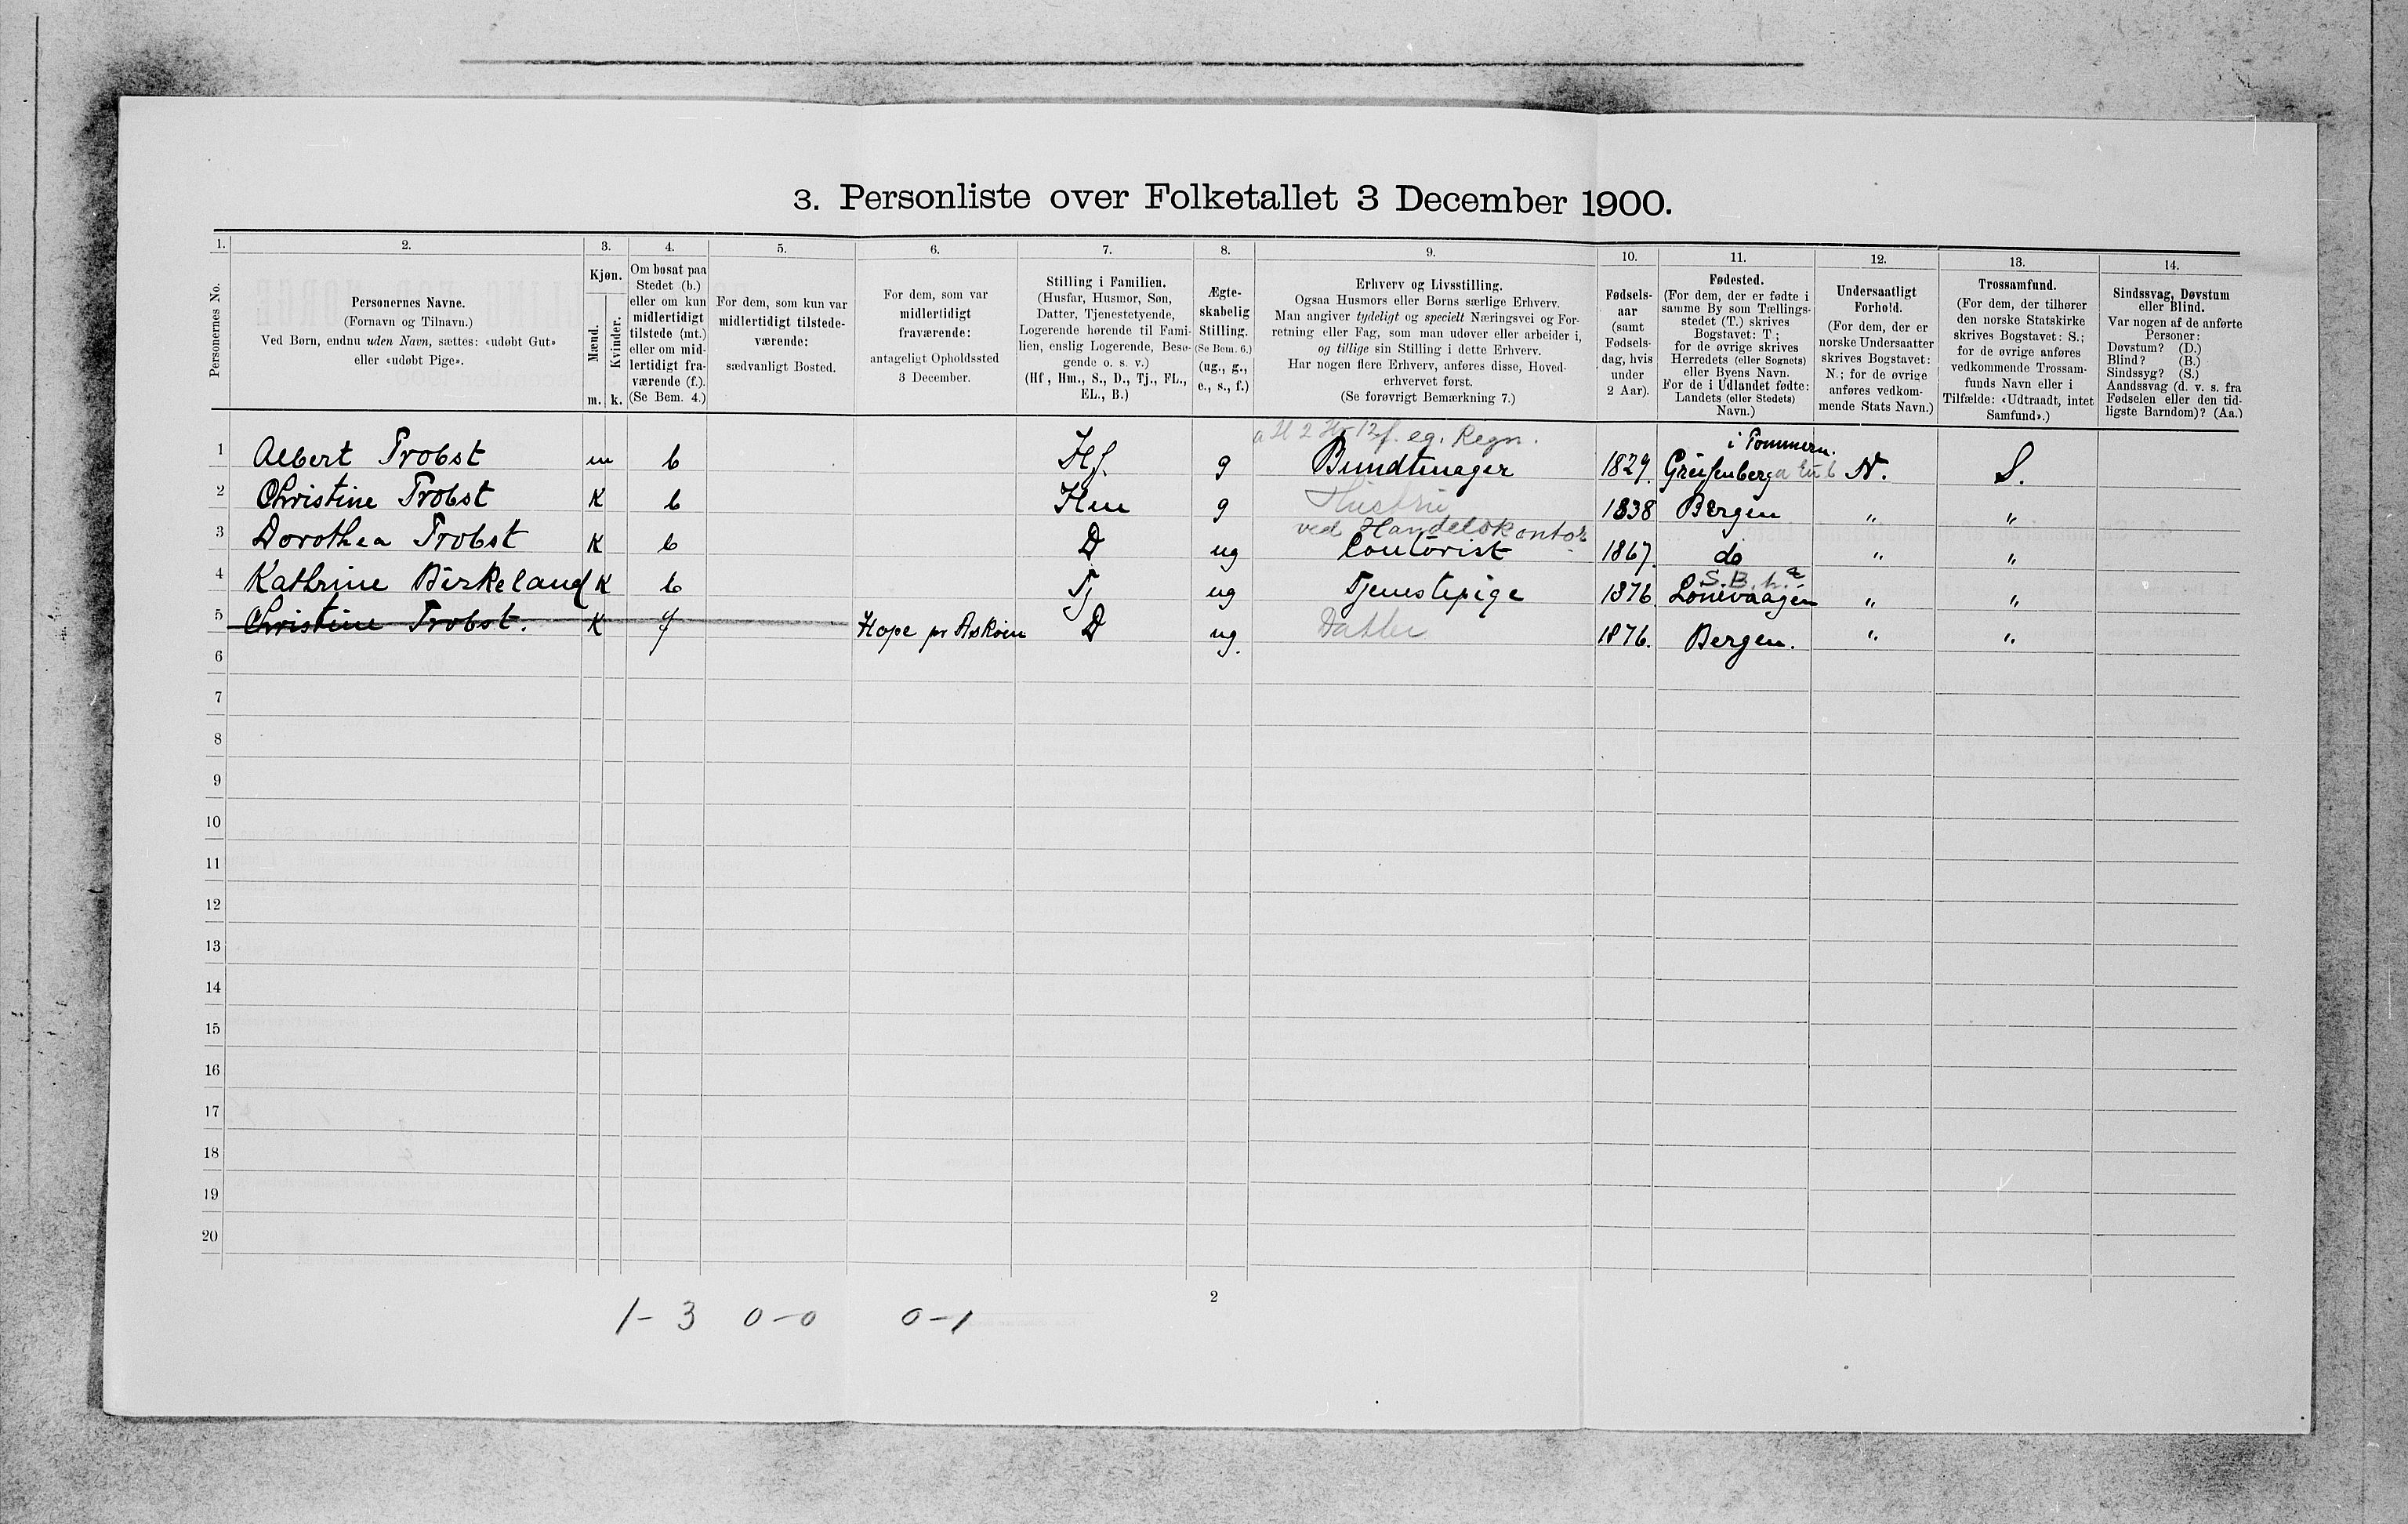 3. Personliste over Folketallet 3 December 1900.
1. 2. 3. 4. 5. 6. 7. 8. 9. 10. 11. 12. 13. 14.
Personernes No.
Personernes Navne.
(Fornavn og Tilnavn.)
Ved Børn, endnu uden Navn, sættes: «udøbt Gut»
eller «udøbt Pige».
Kjøn.
Mænd.
Kvinder.
m. k.
Om bosat paa
Stedet (b.)
eller om kun
midlertidigt
tilstede (mt.)
eller om mid-
lertidigt fra-
værende (f.).
(Se Bem. 4.)
For dem, som kun var
midlertidigt tilstede-
værende:
sædvanligt Bosted.
For dem, som var
midlertidigt
fraværende:
antageligt Opholdssted
3 December.
Stilling i Familien.
(Husfar, Husmor, Søn,
Datter, Tjenestetyende,
Logerende hørende til Fami-
lien, enslig Logerende, Besø-
gende o. s. v.)
(Hf, Hm., S., D., Tj., FL.,
EL., B.)
Ægte-
skabelig
Stilling.
(Se Bem. 6.)
(ug., g.,
e., s., f.)
Erhverv og Livsstilling.
Ogsaa Husmors eller Børns særlige Erhverv.
Man angiver tydeligt og specielt Næringsvei og For-
retning eller Fag, som man udøver eller arbeider i,
og tillige sin Stilling i dette Erhverv.
Har nogen flere Erhverv, anføres disse, Hoved-
erhvervet først.
(Se forøvrigt Bemærkning 7.)
Fødsels-
aar
(samt
Fødsels-
dag, hvis
under
2 Aar).
Fødested.
(For dem, der er fødte i
samme By som Tællings-
stedet (T.) skrives
Bogstavet: T;
for de øvrige skrives
Herredets (eller Sognets)
eller Byens Navn.
For de i Udlandet fødte:
Landets (eller Stedets)
Navn.)
Undersaatligt
Forhold.
(For dem, der er
norske Undersaatter
skrives Bogstavet:
N.; for de øvrige
anføres vedkom-
mende Stats Navn.)
Trossamfund.
(For dem, der tilhører
den norske Statskirke
skrives Bogstavet: S.;
for de øvrige anføres
vedkommende Trossam-
funds Navn eller i
Tilfælde: «Udtraadt, intet
Samfund».)
Sindssvag, Døvstum
eller Blind.
Var nogen af de anførte
Personer:
Døvstum? (D.)
Blind? (B.)
Sindssyg? (S.)
Aandssvag (d. v. s. fra
Fødselen eller den tid-
ligste Barndom)? (Aa.)
eg. Regn. i Pommern.
1 Albert Probst m b Hf. g Bundtmager 1829. Greifenberg N. S.
Hustru
2 Christine Probst K b Hm g 1838 Bergen " "
ved Handelskontor
3 Dorothea Probst K b D ug Contorist 1867. do " "
S.B.h.
4 Kathrine Birkeland K b Tj ug Tjenestepige 1876. Lonevaagen " "
5 Christine Probst. K f Hope pr Askøen D ug. Datter 1876. Bergen. " "
6
7
8
9
10
11
12
13
14
15
16
17
18
19
20
2
1-3 0-0 0-1